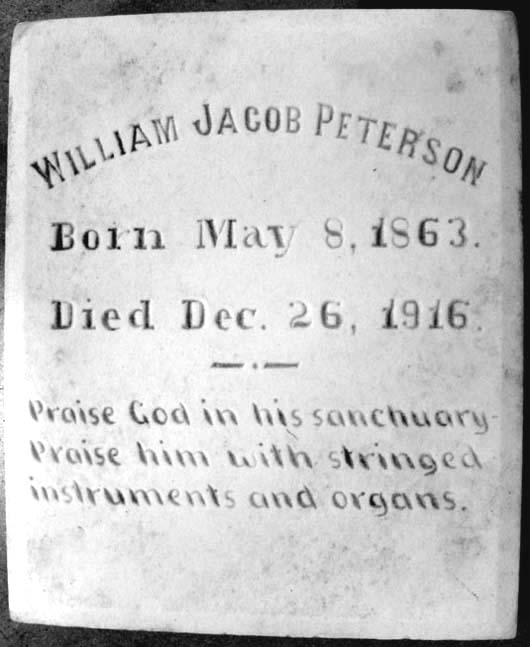 WILLIAM JACOB PETERSON
Born May 8, 1863.
Died Dec. 26, 1916.
Praise God in his sanchuary-
Praise him with stringed
instruments and organs.